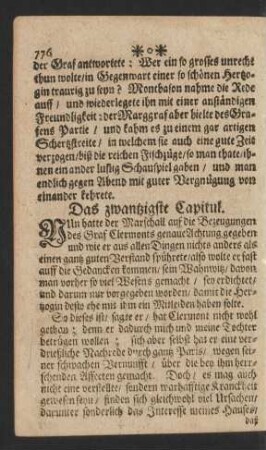 776
der Graf antwortete: Wer ein so grosses unrecht
thun wolte/ in Gegenwart einer so schönen Hertzo-
gin traurig zu seyn? Montbason nahme die Rede
auff/ und wiederlegete ihn mit einer anständigen
Freundligkeit: der Marggraf aber hielte des Gra-
fens Partie/ und kahm es zu einem gar artigen
Schertzstreite/ in welchem sie auch eine gute Zeit
verzogen/ biß die reichen Fischzüge/ so man thate/ ih-
nen ein ander lustig Schauspiel gaben/ und man
endlich gegen Abend mit guter Vergnügung von
einander kehrete.
Das zwantzigste Capitul.
NUn hatte der Marschall auff die Bezeugungen
des Graf Clermonts genaue Achtung gegeben
und wie er aus allen Dingen nichts anders als
einen gantz guten Verstand spührete/ also wolte er fast
auff die Gedancken kommen/ sein Wahnwitz/ davon
man vorher so viel Wesens gemacht/ so erdichtet/
und darum nur vorgegeben worden/ damit die Hertz-
zogin desto ehe mit ihm ein Mitleiden haben solte.
So dieses ist/ sagte er/ hat Clermont nicht wohl
gethan: denn er dadurch mich und meine Tochter
betrügen wollen; sich aber selbst hat er eine ver-
drießliche Nachrede durch gantz Paris/ wegen sei-
ner schwachen Vernunfft/ über die bey ihm herr-
schenden Affecten gemacht. Doch/ es mag auch
nicht eine verstellte/ sondern warhafftige Kranckheit
gewesen seyn/ finden sich gleichwohl viel Ursachen/
darunter sonderlich das Interesse meines Hauses/
daß